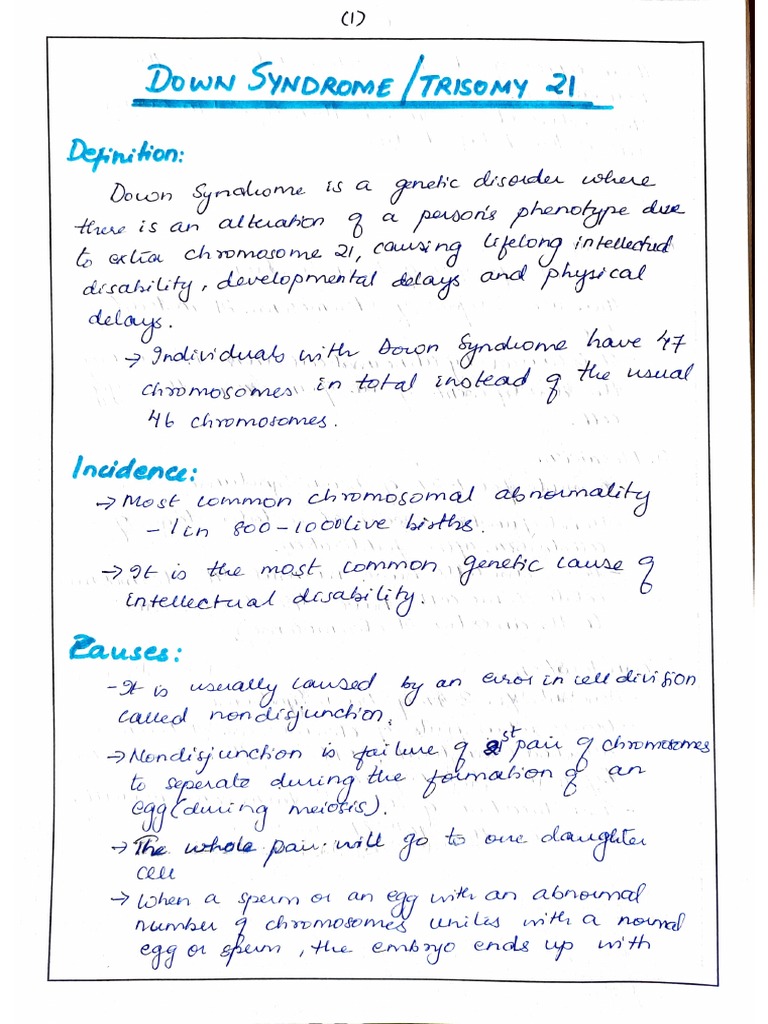 (1)
DOWN SYNDROME/TRISOMY 21
Definition:
Down Syndrome is a genetic disorder where
there is an alteration of a person's phenotype due
to extra chromosome 21, causing lifelong intellectual
disability, developmental delays and physical
delays.
→ Individuals with Down Syndrome have 47
chromosomes in total instead of the usual
46 chromosomes.
Incidence:
→ Most common chromosomal abnormality
- 1 in 800-1000 live births.
→ It is the most common genetic cause of
intellectual disability.
Causes:
- It is usually caused by an error in cell division
called nondisjunction.
→ Nondisjunction is failure of 21st pair of chromosomes
to seperate during the formation of an
egg (during meiosis).
→ The whole pair will go to one daughter
cell
→ When a sperm or an egg with an abnormal
number of chromosomes unites with a normal
egg or sperm, the embryo ends up with